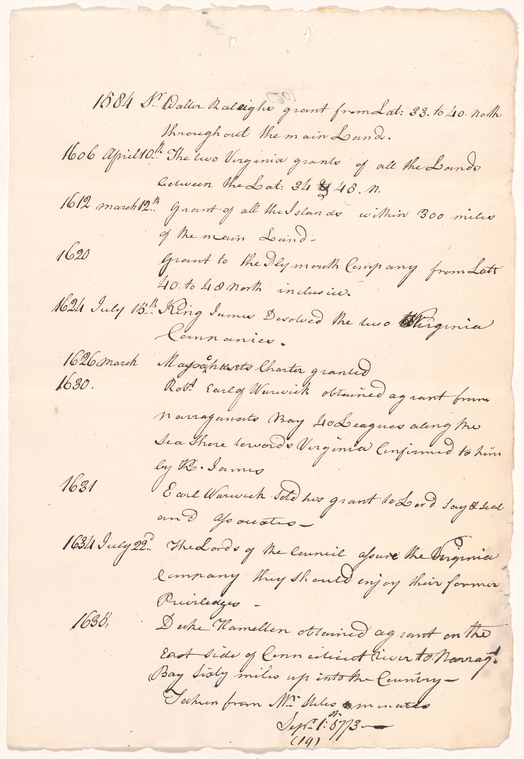 1584 Sr. Walter Raleighs grant from Lat: 33. to 40. North
throughout the main Land.
1606 April 10th. The two Virginia grants of all the Lands
between the Lat: 34 & 45. N.
1612 march 12th. Grant of all the Islands within 300 miles
of the main Land-
1620 Grant to the Plymouth Company from Latt
40 to 48 North inclusive.
1624 July 15th King James Desolved the two Virginia
Companies.
1626 march Massachusets Charter granted
1630. Robt. Earl of Warwick obtained a grant from
narragansets Bay 40 Leagues along the
Sea Shore towards Virginia Confirmed to him
by K. James
1631 Earl Warwick Sold his grant to Lord Say & Seal
and Assosiates—
1634 July 22d. The Lords of the Council assure the Virginia
Company they should enjoy their former
Priviledges -
1635. Duke Hamelten obtained a grant on the
East Side of Connecticut River to Narragt.
Bay Sixty miles up into the Country—
Taken from Mr. Stiles minutes
Sepr. 1st. 1773—
(19)